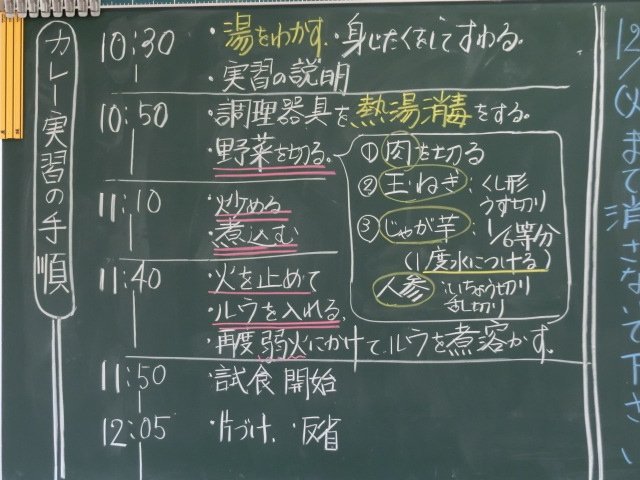 カレー実習の手順
10:30 ・湯をわかす ・身じたくをしてすわる。
・実習の説明
10:50 ・調理器具を熱湯消毒をする。
・野菜を切る。
①肉を切る
②玉ねぎ:くし形
うす切り
③じゃが芋:1/6等分
(1度水につける)
人参:いちょう切り
乱切り
11:10 ・炒める
・煮込む
11:40 ・火を止めて
・ルウを入れる。
・再度弱火にかけて、ルウを煮溶かす。
11:50 ・試食開始
12:05 ・片づけ、・反省
まで消さないで下さい